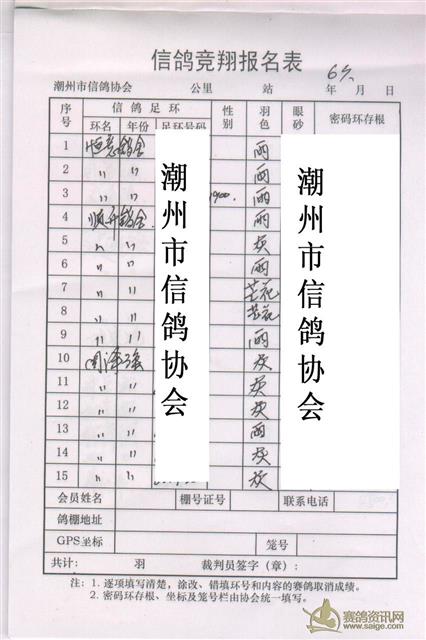 信鸽竞翔报名表
潮州市信鸽协会 公里 站 年 月 日
序号 信鸽足环 性别 羽色 眼砂 密码环存根
环名 年份 足环号码
1 雨
2 〃 〃 雨
3 〃 〃 1900. 雨
4 雨
5 〃 〃 灰
6 〃 〃 雨
7 〃 〃 花
8 〃 〃 花
9 〃 〃 雨
10 周泽强 灰
11 〃 〃 灰
12 〃 〃 灰
13 〃 〃 雨
14 〃 〃 灰
15 〃 〃 灰
潮州市信鸽协会
潮州市信鸽协会
会员姓名 棚号证号 联系电话
鸽棚地址
GPS坐标 笼号
共计： 羽 裁判员签字（章）：
注：1. 逐项填写清楚，涂改、错填环号和内容的赛鸽取消成绩。
2. 密码环存根、坐标及笼号栏由协会统一填写。
赛鸽资讯网
www.saige.com